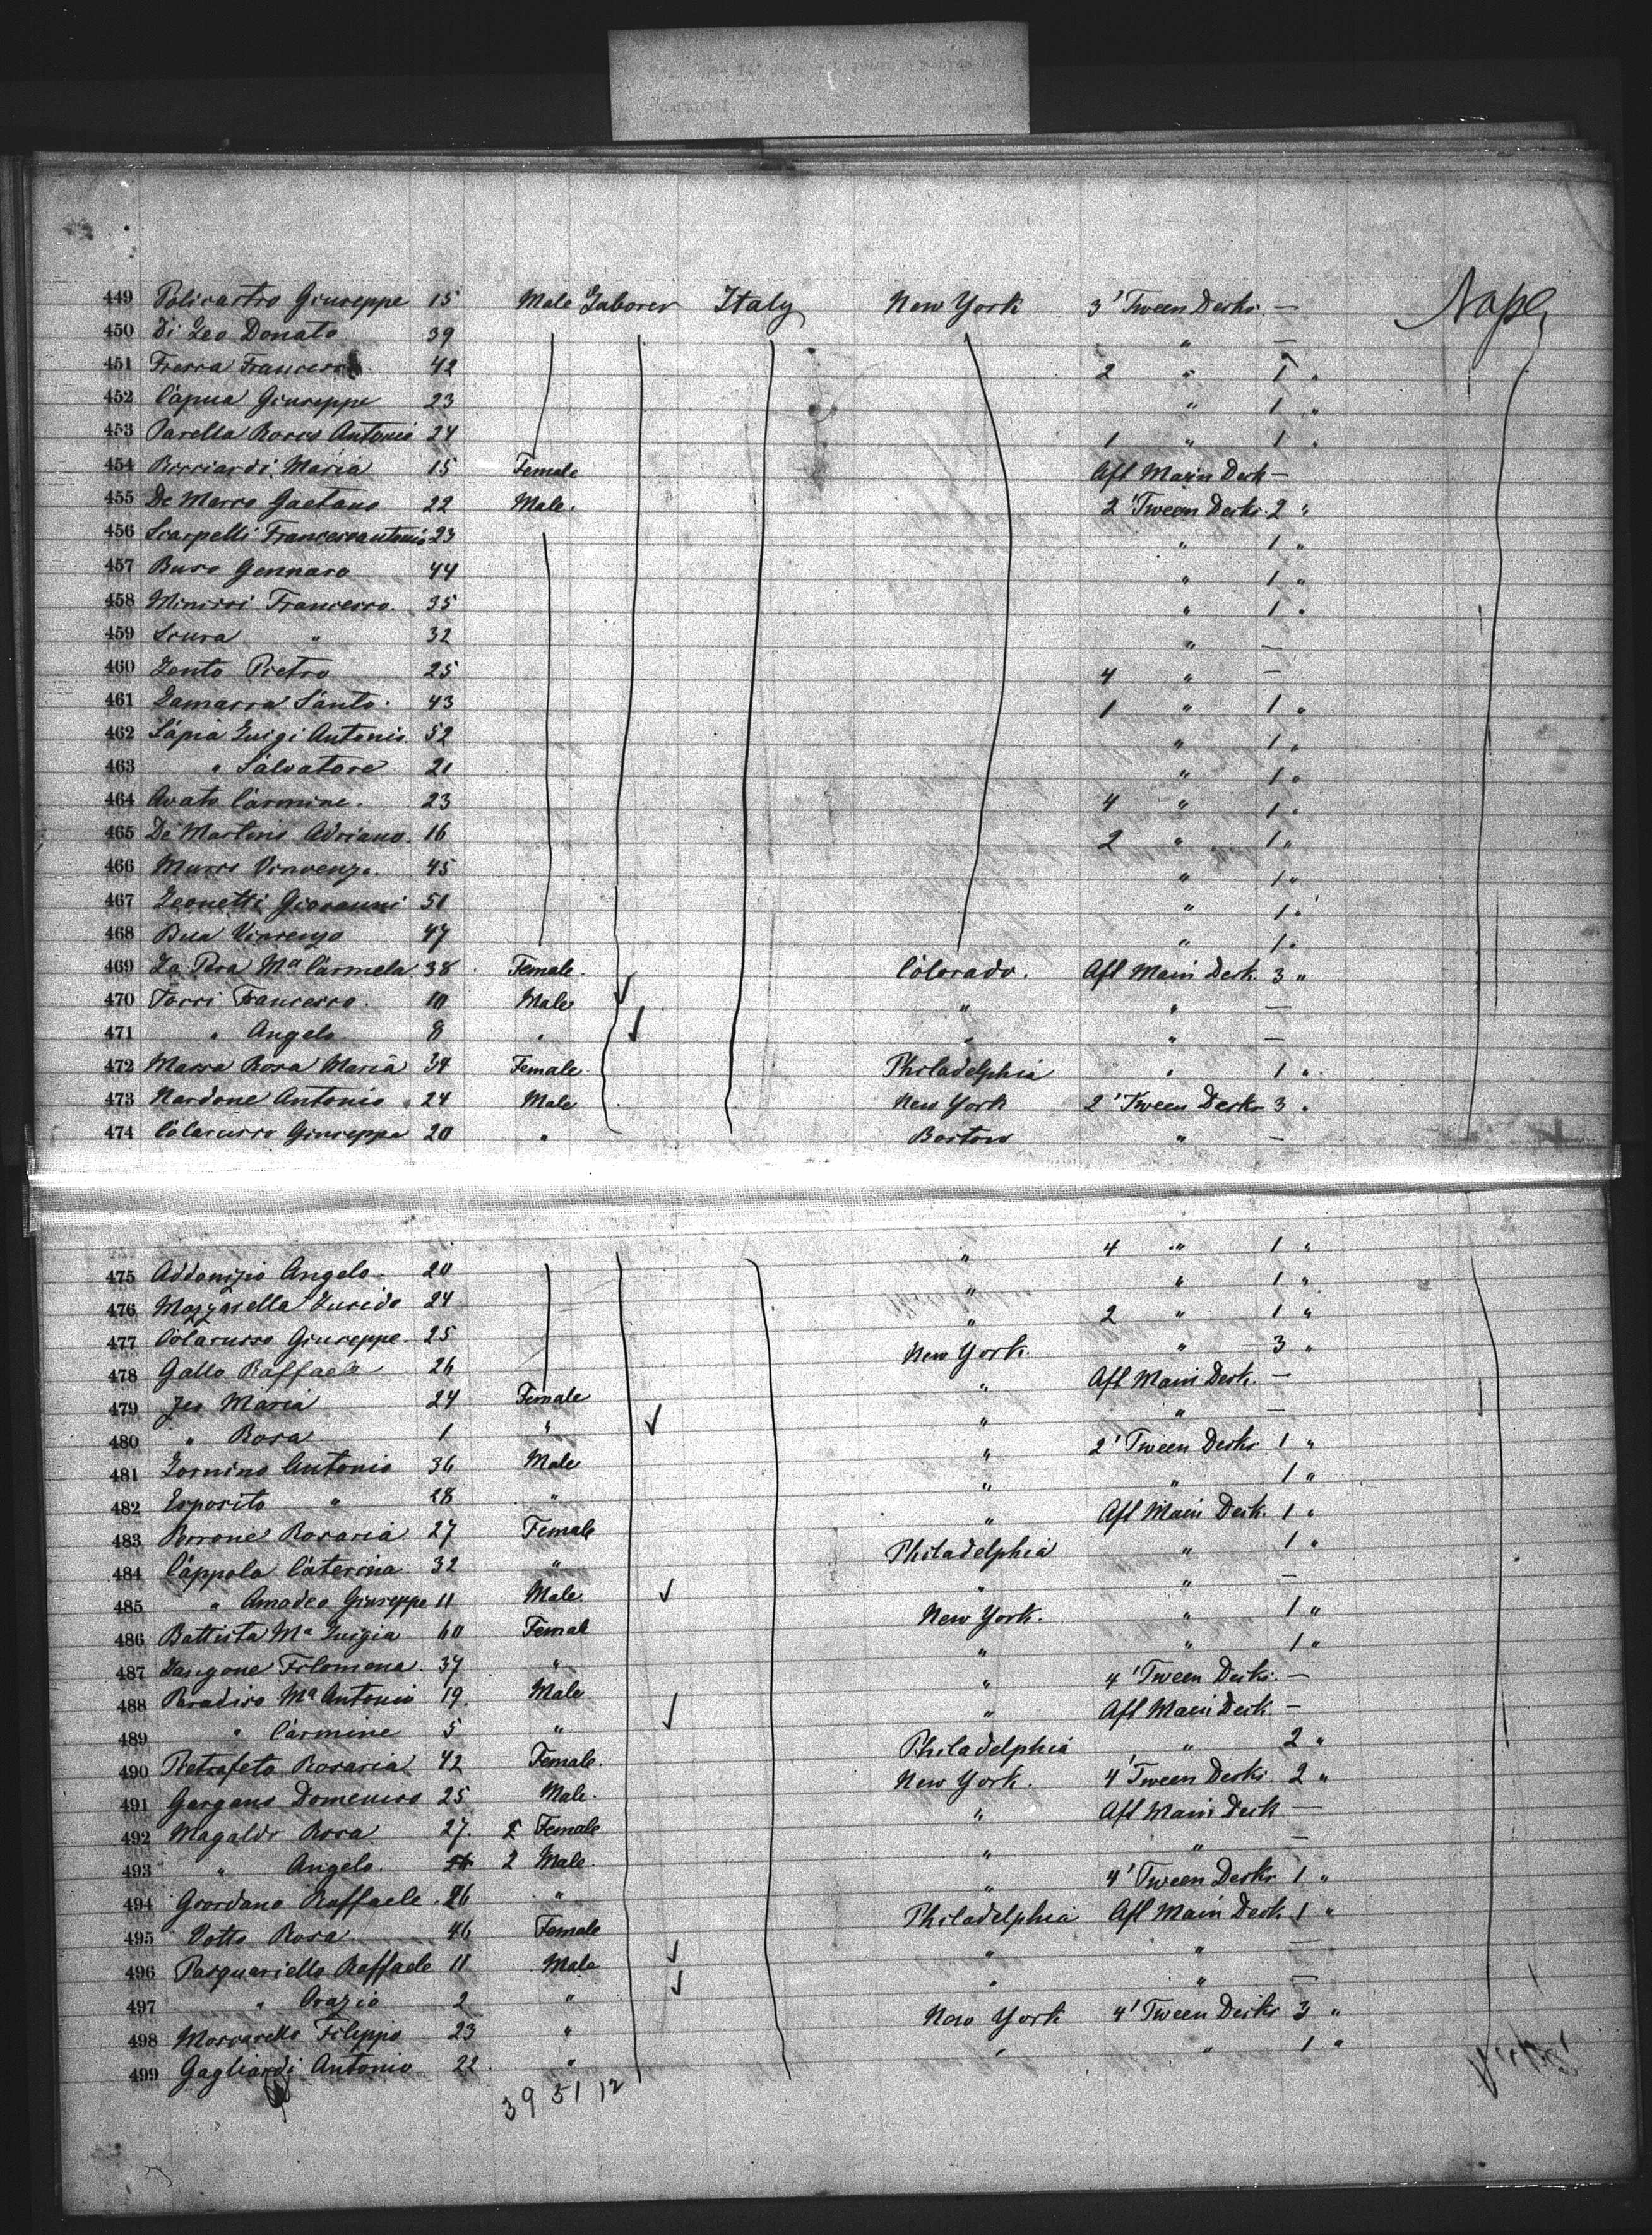 449 Policastro Giuseppe 15 Male Laborer Italy New York 3 'Tween Decks — Naples
450 Di Leo Donato 39 " —
451 Fresca Francesco 42 2 " 1 "
452 Capua Giuseppe 23 " 1 "
453 Parella Rocco Antonio 24 1 " 1 "
454 Ricciardi Maria 15 Female Aft Main Deck —
455 De Marco Gaetano 22 Male. 2 'Tween Decks. 2 "
456 Scarpelli Francescantonio 23 " 1 "
457 Buso Gennaro 44 " 1 "
458 Minissi Francesco. 35 " 1 "
459 Scura " 32 " —
460 Lento Pietro 25 4 " —
461 Lamacca Santo. 43 1 " 1 "
462 Sapia Luigi Antonio. 52 " 1 "
463 " Salvatore 21 " 1 "
464 Avato Carmine. 23 4 " 1 "
465 De Martino Adriano. 16 2 " 1 "
466 Murro Vincenzo. 45 " 1 "
467 Leonetti Giovanni 51 " 1 "
468 Bua Vincenzo 47 " 1 "
469 La Pera Ma Carmela 38 Female. Colorado. Aft Main Deck. 3 "
470 Tocci Francesco. 10 Male " " —
471 " Angelo. 8 " " " —
472 Massa Rosa Maria 34 Female. Philadelphia " 1 "
473 Nardone Antonio 24 Male New York 2 'Tween Decks 3 "
474 Colarusso Giuseppe 20 " Boston " —
475 Addonizio Angelo 20 " 4 " 1 "
476 Mazzarella Lucido 24 " " 1 "
477 Colarusso Giuseppe. 25 " 2 " 1 "
478 Gallo Raffaele 26 New York. " 3 "
479 Jes Maria 24 Female " Aft Main Deck. —
480 " Rosa 1 " " " —
481 Lornino Antonio 36 Male " 2 'Tween Decks 1 "
482 Esposito " 28 " " " 1 "
483 Perrone Rosaria 27 Female " Aft Main Deck. 1 "
484 Cappola Caterina 32 " Philadelphia " 1 "
485 " Amadeo Giuseppe 11 Male. " " —
486 Battista Ma Luigia 60 Femal New York. " 1 "
487 Langone Filomena. 37 " " " 1 "
488 Paradiso Ma Antonio 19. Male " 4 'Tween Decks. —
489 " Carmine 5 " " Aft Main Deck —
490 Pietrafeta Rosaria 42 Female. Philadelphia " 2 "
491 Gargano Domenico 25 Male. New York. 4 'Tween Decks. 2 "
492 Magaldi Rosa 27. Female " Aft Main Deck —
493 " Angelo. 2 Male. " " —
494 Giordano Raffaele. 26 " " 4 'Tween Decks 1 "
495 Votto Rosa 46 Female Philadelphia Aft Main Deck 1 "
496 Pasquariello Raffaele 11 Male " " —
497 " Orazio 2 " " " —
498 Moscarello Filippo 23 " New York 4 'Tween Decks 3 "
499 Gagliardi Antonio 22 " " " 1 "
39 51 12